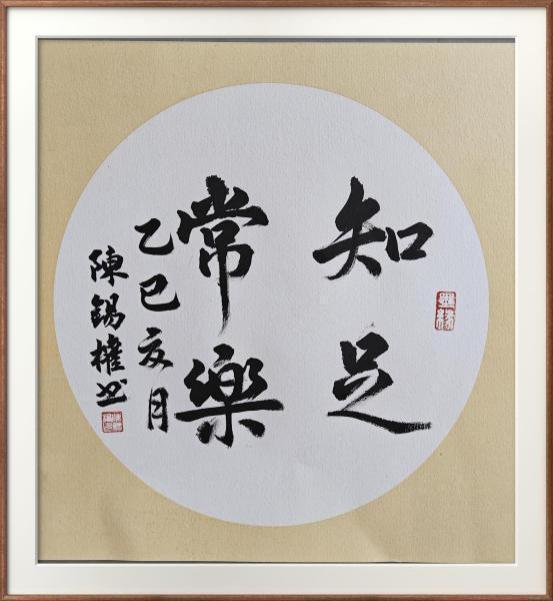 知足
常樂
乙巳亥月
陳錫權书